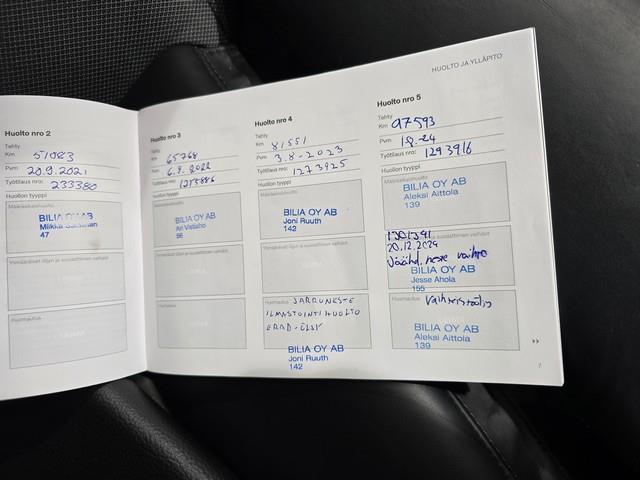 HUOLTO JA YLLÄPITO
Huolto nro 2
Tehty
Km 51083
Pvm 20.9.2021
Työtilaus nro: 233380
Huollon tyyppi
Määräaikaishuolto
BILIA OY AB
Miikka
47
Huomautus
Huolto nro 3
Tehty
Km 65768
Pvm 6.9.2022
Työtilaus nro:
Huollon tyyppi
Määräaikaishuolto
BILIA OY AB
Ari
56
Huomautus
Huolto nro 4
Tehty
Km 81551
Pvm 3.8-2023
Työtilaus nro: 1273925
Huollon tyyppi
Määräaikaishuolto
BILIA OY AB
Joni Ruuth
142
Huomautus JARRUNESTE
ILMASTOINTIHUOLTO
BILIA OY AB
Joni Ruuth
142
Huolto nro 5
Tehty
Km 97593
Pvm
Työtilaus nro: 1293916
Huollon tyyppi
Määräaikaishuolto
BILIA OY AB
Aleksi Aittola
139
1301341
20.12.2024
Jäähd. neste vaihto
BILIA OY AB
Jesse Ahola
155
Huomautus Vaihteistoöljy
BILIA OY AB
Aleksi Aittola
139
7